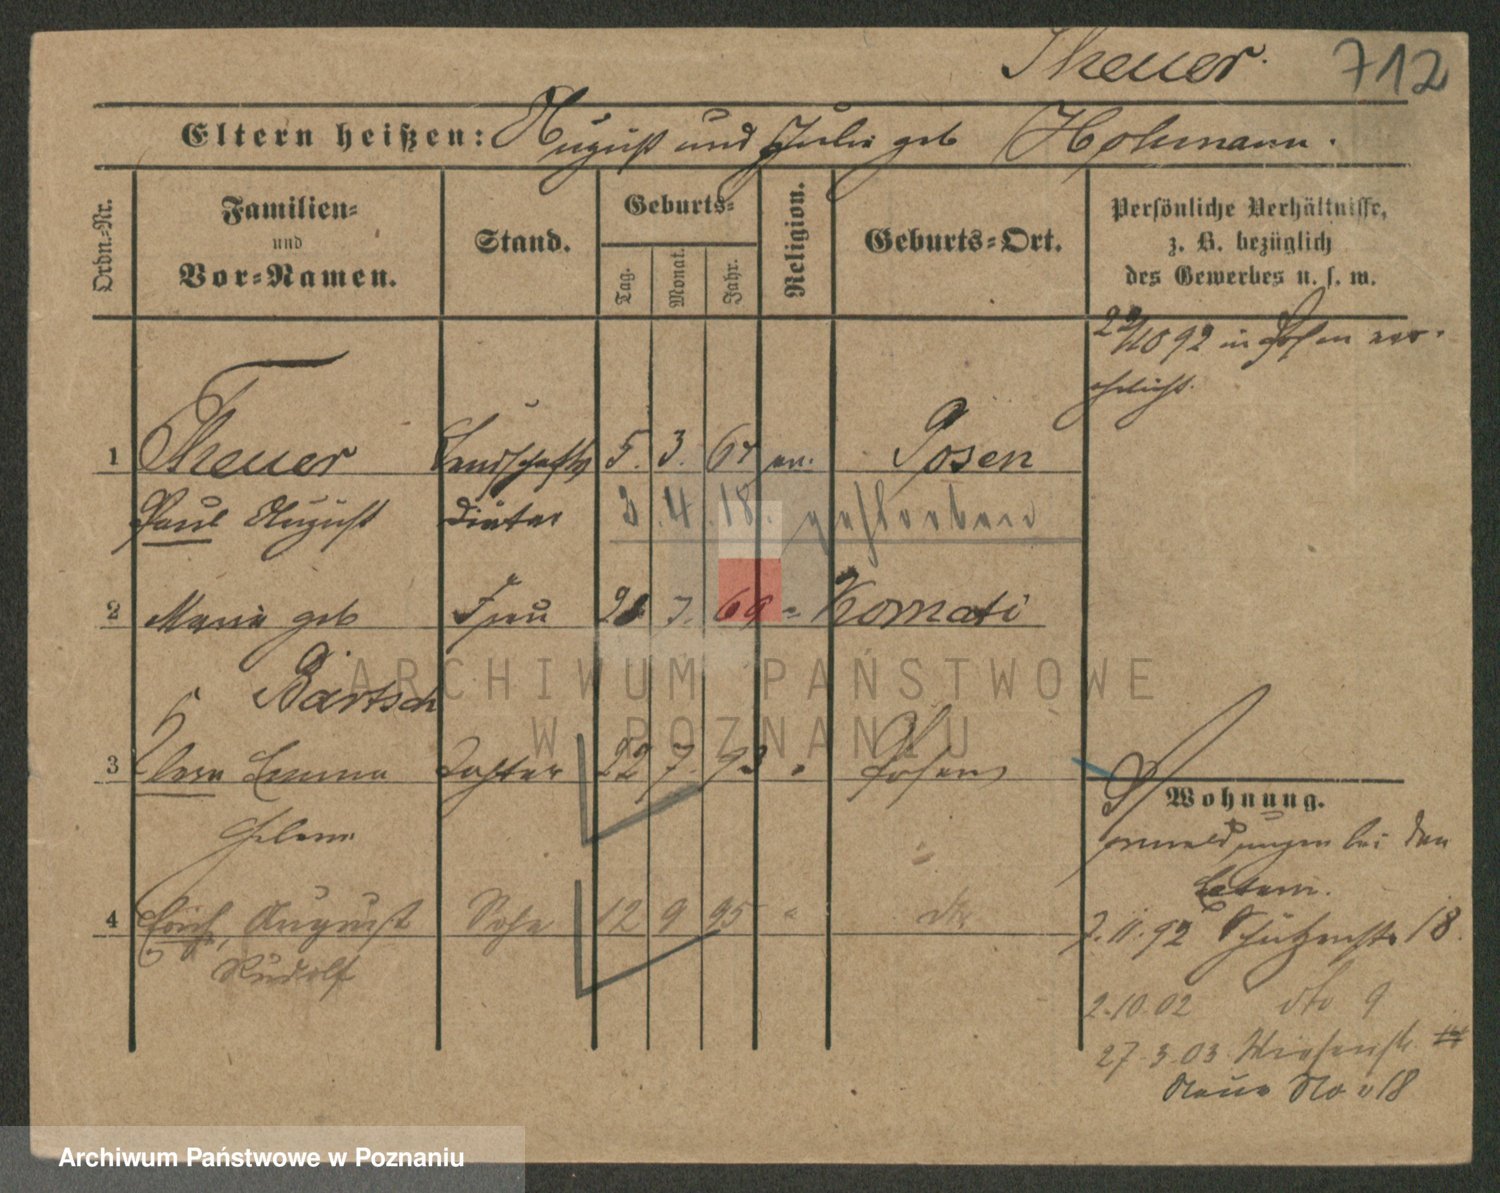 Theuer. 712
Eltern heißen: August und Julie geb Hohmann.
Ordn.-Nr.
Familien-
und
Vor-Namen.
Stand.
Geburts-
Tag.
Monat.
Jahr.
Religion.
Geburts-Ort.
Persönliche Verhältnisse,
z. B. bezüglich
des Gewerbes u. s. w.
22/10 92 in Posen ver-
ehelicht.
1 Theuer Landschafts 5. 3. 67 ev. Posen
Paul August Diätar 3. 4. 18. gestorben
2 Marie geb Frau 28 7. 69 " Kornati
Bartsch
3 Clara Emma Tochter 22 7. 93 " Posen
Helene
4 Erich, August Sohn 12 9 95 " dto
Rudolf
Wohnung.
bei den
Eltern.
7.11.92 Schützenstr 18.
2.10.02 dto 9
27.3.03 Wiesenstr
Neue No 18
ARCHIWUM PAŃSTWOWE
W POZNANIU
Archiwum Państwowe w Poznaniu